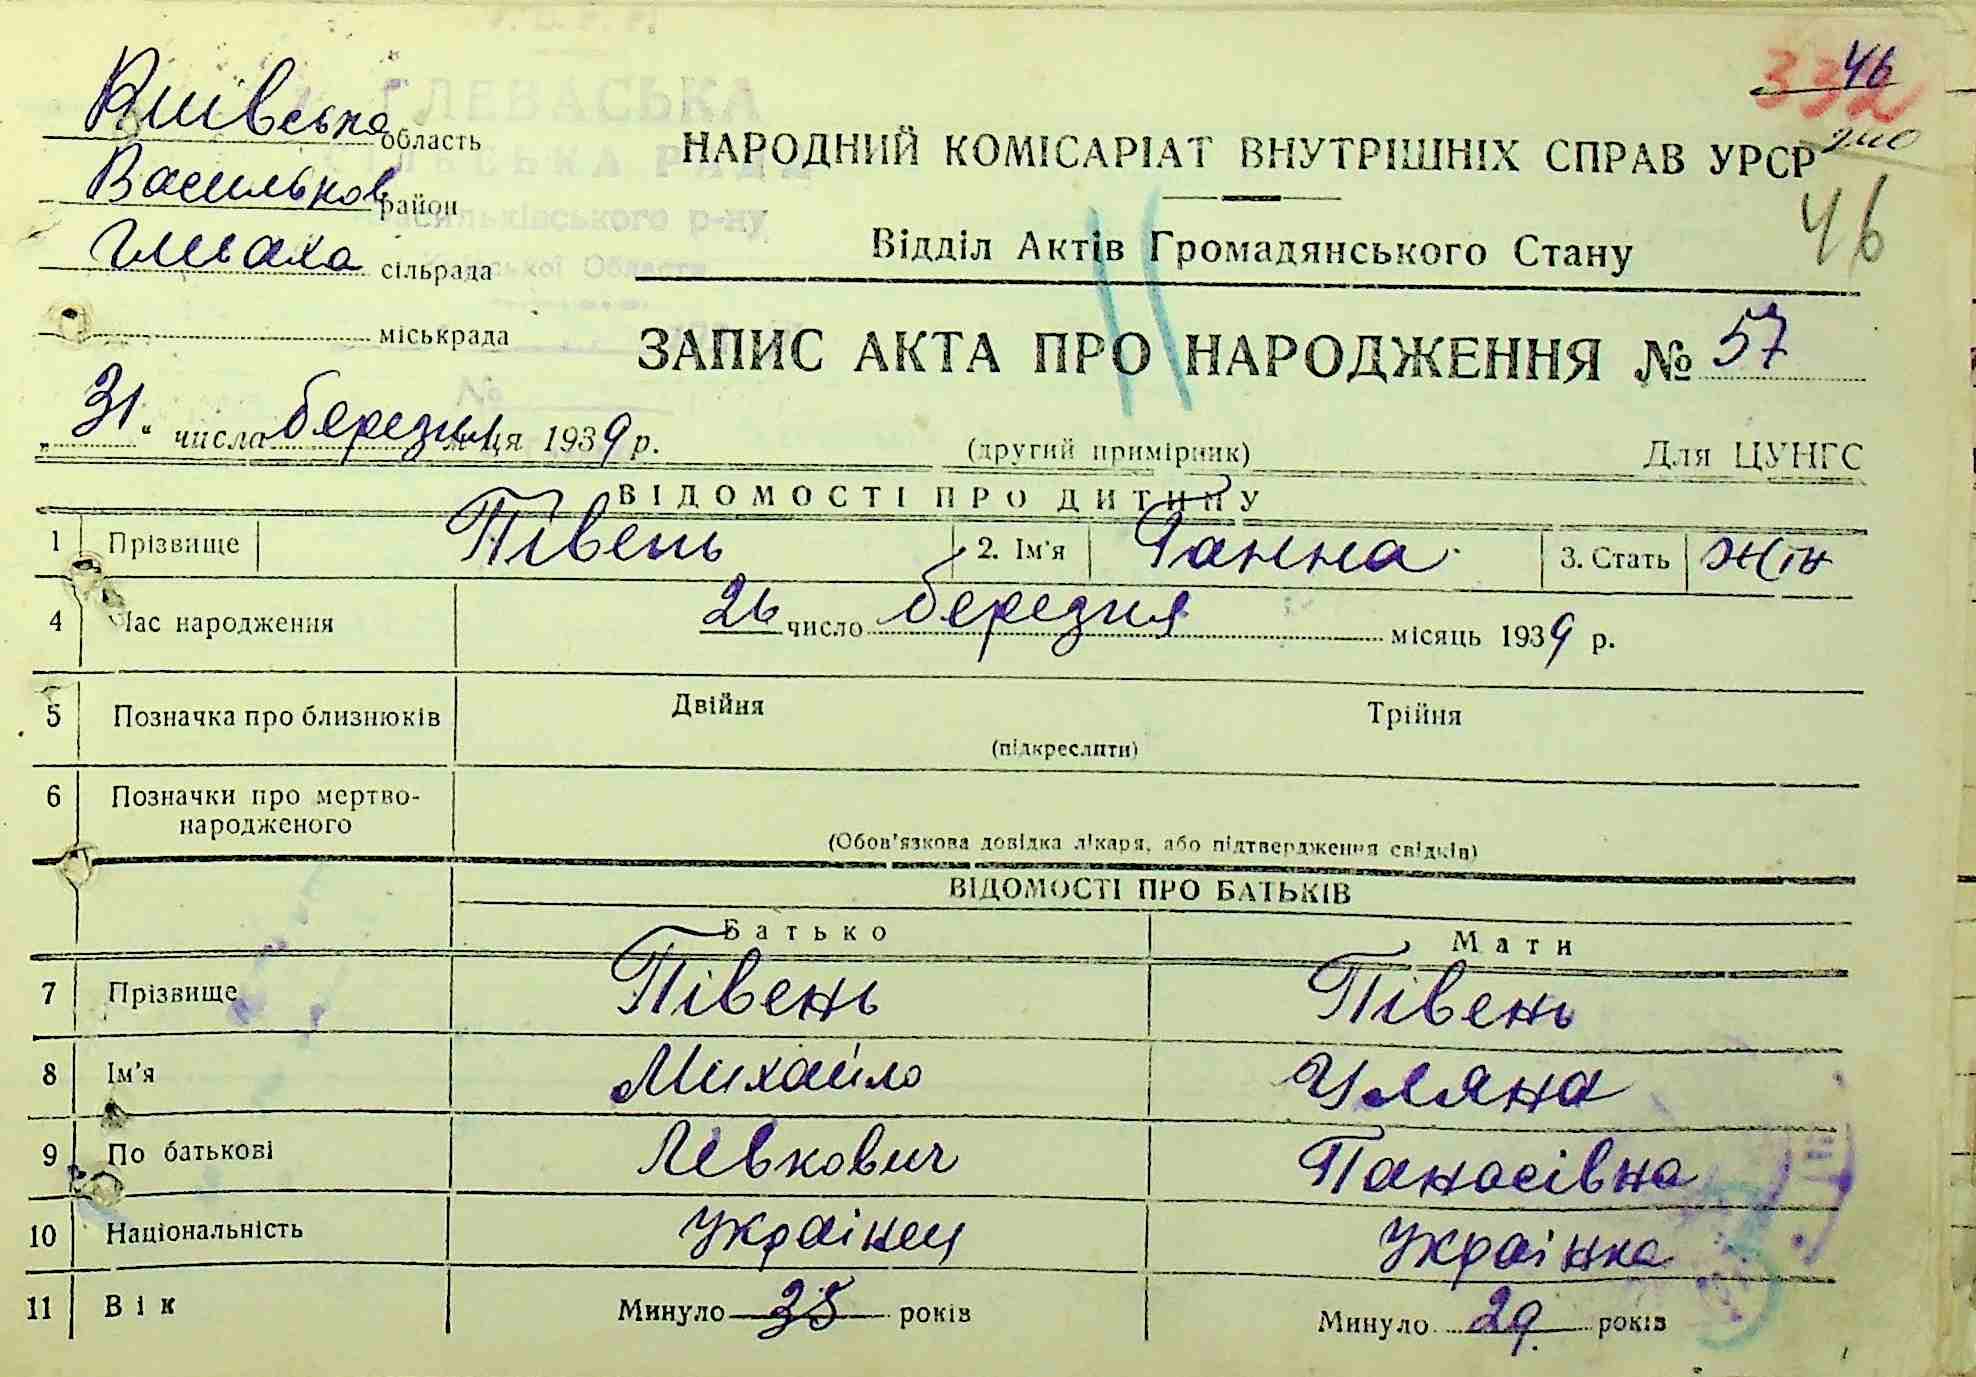 332 46
Київська область
240
НАРОДНИЙ КОМІСАРІАТ ВНУТРІШНІХ СПРАВ УРСР
ГЛЕВАСЬКА
СІЛЬСЬКА РАДА
Васильков район
Васильківського р-ну
46
Відділ Актів Громадянського Стану
Глеваха сільрада
Київської Области
міськрада
ЗАПИС АКТА ПРО НАРОДЖЕННЯ № 57
№
„31“ число березня м-ця 1939 р.
(другий примірник)
Для ЦУНГС
ВІДОМОСТІ ПРО ДИТИНУ
1 Прізвище Півень 2. Ім'я Ганна 3. Стать жін
4 Час народження 26 число березня місяць 1939 р.
5 Позначка про близнюків Двійня Трійня
(підкреслити)
6 Позначки про мертво-
народженого
(Обов'язкова довідка лікаря, або підтвердження свідків)
ВІДОМОСТІ ПРО БАТЬКІВ
Батько Мати
7 Прізвище Півень Півень
8 Ім'я Михайло Уляна
9 По батькові Лєвкович Панасівна
10 Національність Українец Українка
11 Вік Минуло 35 років Минуло 29 років